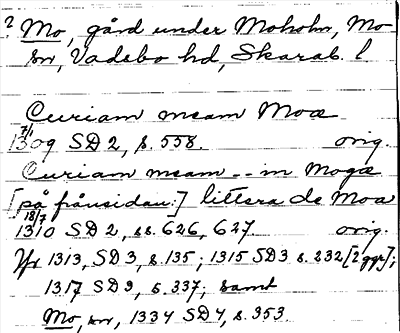 ? Mo, gård under Moholm, Mo
sn, Vadsbo hd, Skarab. l
Curiam meam Moa
7/1
1309 SD 2, s. 558. orig.
Curiam meam -- in Mogæ
[på frånsidan:] littera de Moa
18/7
1310 SD 2, ss. 626, 627. orig.
Jfr 1313, SD 3, s. 135; 1315 SD3 s. 232 [2 ggr];
1317 SD 3, s. 337; samt
Mo, sn, 1334 SD 4, s. 353